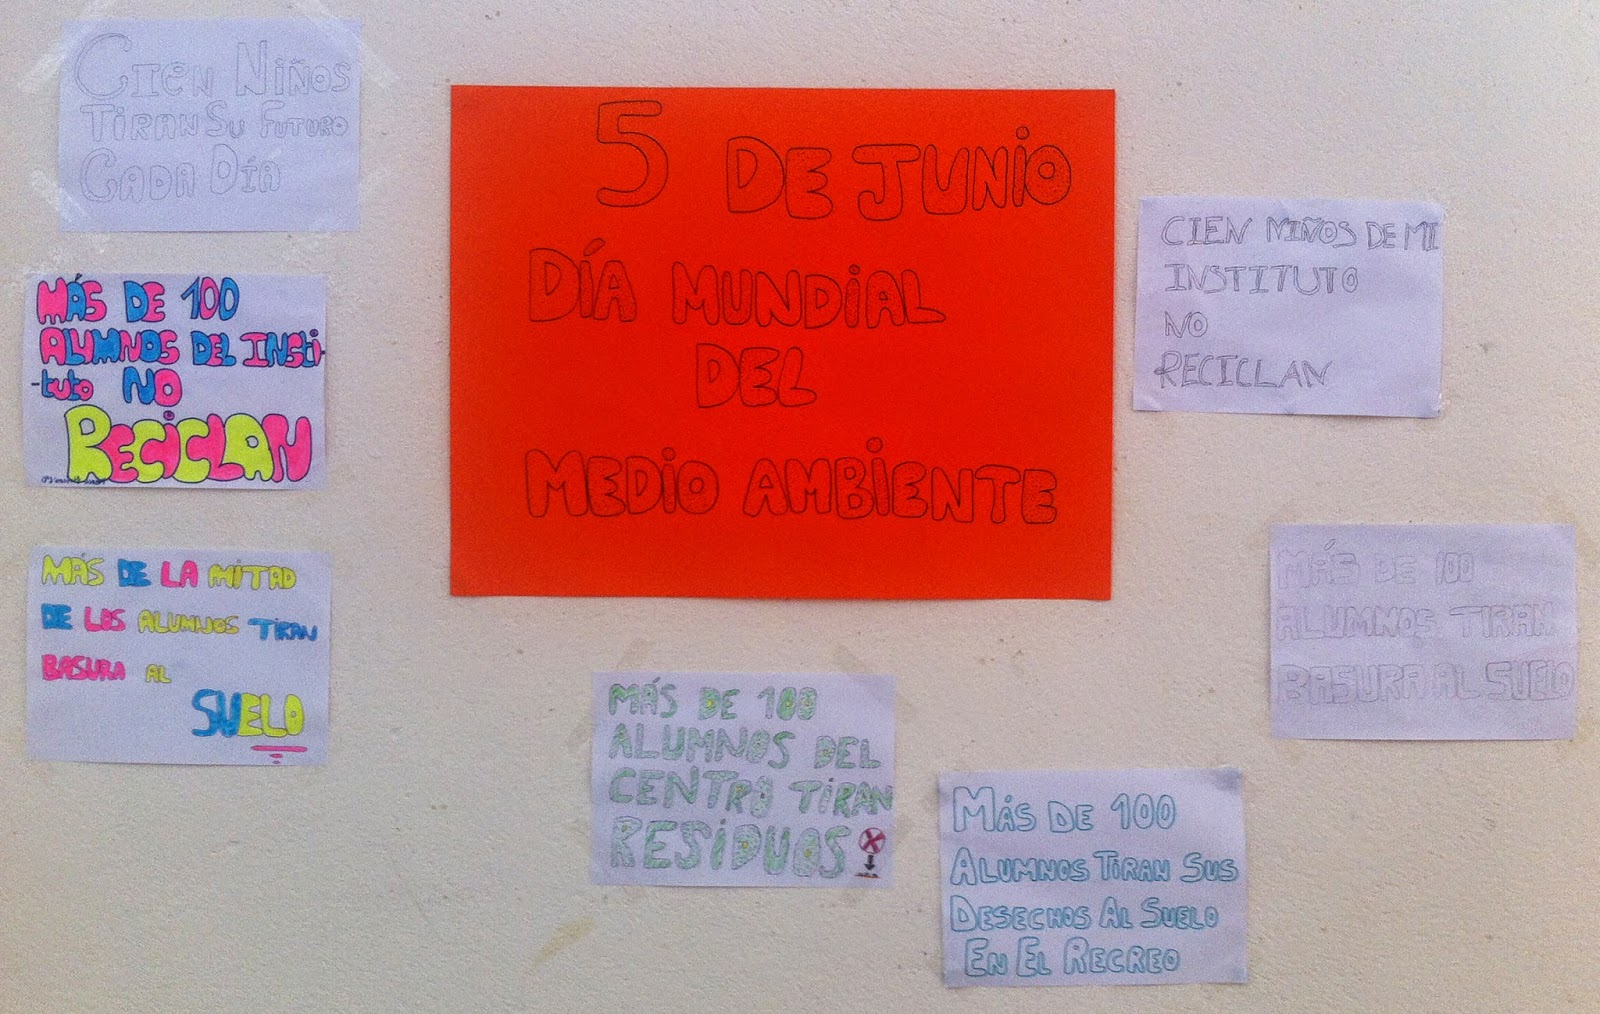 Cien Niños
Tiran Su Futuro
Cada Día
MÁS DE 100
ALUMNOS DEL INSTi-
-tuto NO
RECICLAN
MÁS DE LA MITAD
DE LOS ALUMNOS TIRAN
BASURA AL
SUELO
5 DE JUNIO
DÍA MUNDIAL
DEL
MEDIO AMBIENTE
CIEN NIÑOS DE MI
INSTITUTO
NO
RECICLAN
MÁS DE 100
ALUMNOS TIRAN
BASURA AL SUELO
MÁS DE 100
ALUMNOS DEL
CENTRO TIRAN
RESIDUOS
MÁS DE 100
ALUMNOS TIRAN SUS
DESECHOS AL SUELO
EN EL RECREO